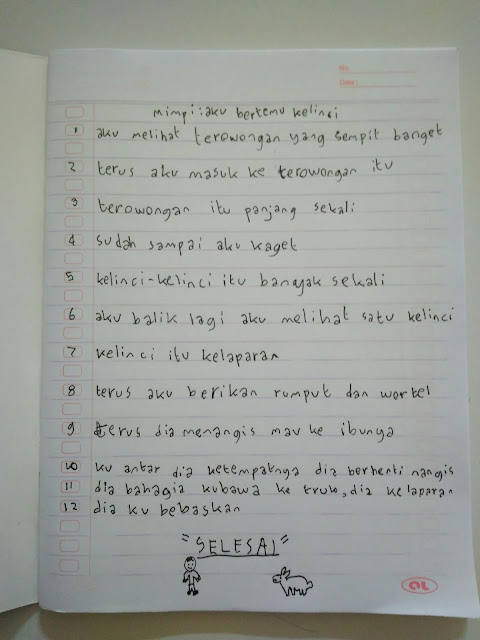 No.
Date:
mimpi: aku bertemu kelinci
1 aku melihat terowongan yang sempit banget
2 terus aku masuk ke terowongan itu
3 terowongan itu panjang sekali
4 sudah sampai aku kaget
5 kelinci-kelinci itu banyak sekali
6 aku balik lagi aku melihat satu kelinci
7 kelinci itu kelaparan
8 terus aku berikan rumput dan wortel
9 terus dia menangis mau ke ibunya
10 ku antar dia ketempatnya dia berhenti nangis
11 dia bahagia kubawa ke truk, dia kelaparan
12 dia ku bebaskan
"SELESAI"